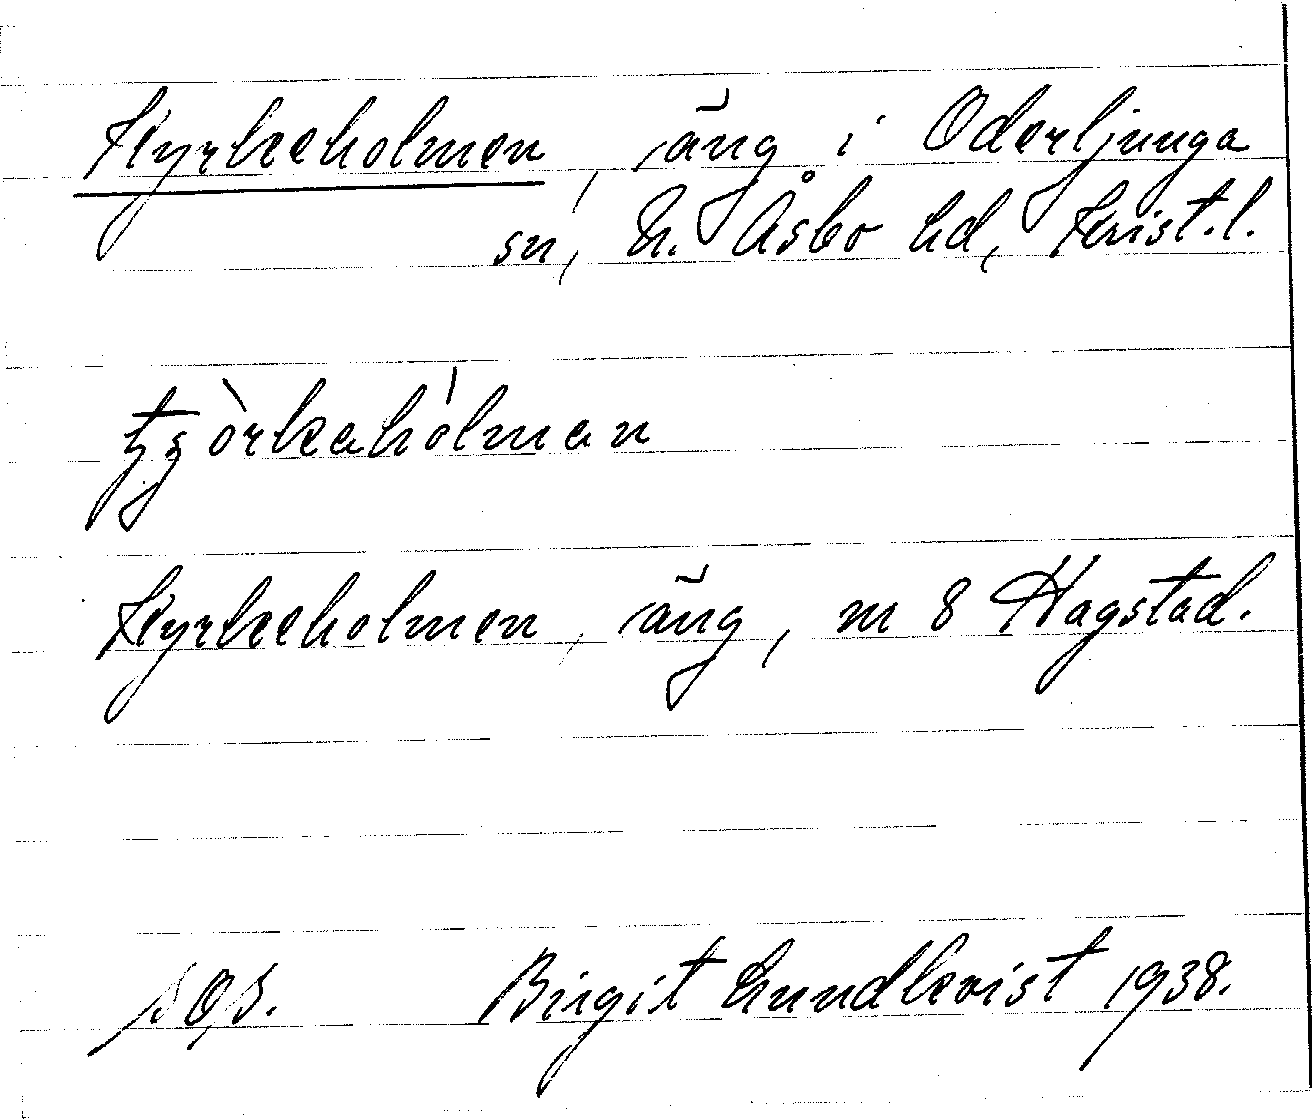 Kyrkeholmen, äng i Oderljunga
sn, N. Åsbo hd, Krist. l.
tzòrkahólman
Kyrkeholmen, äng, m 8 Hagstad.
Birgit Lundkvist 1938.